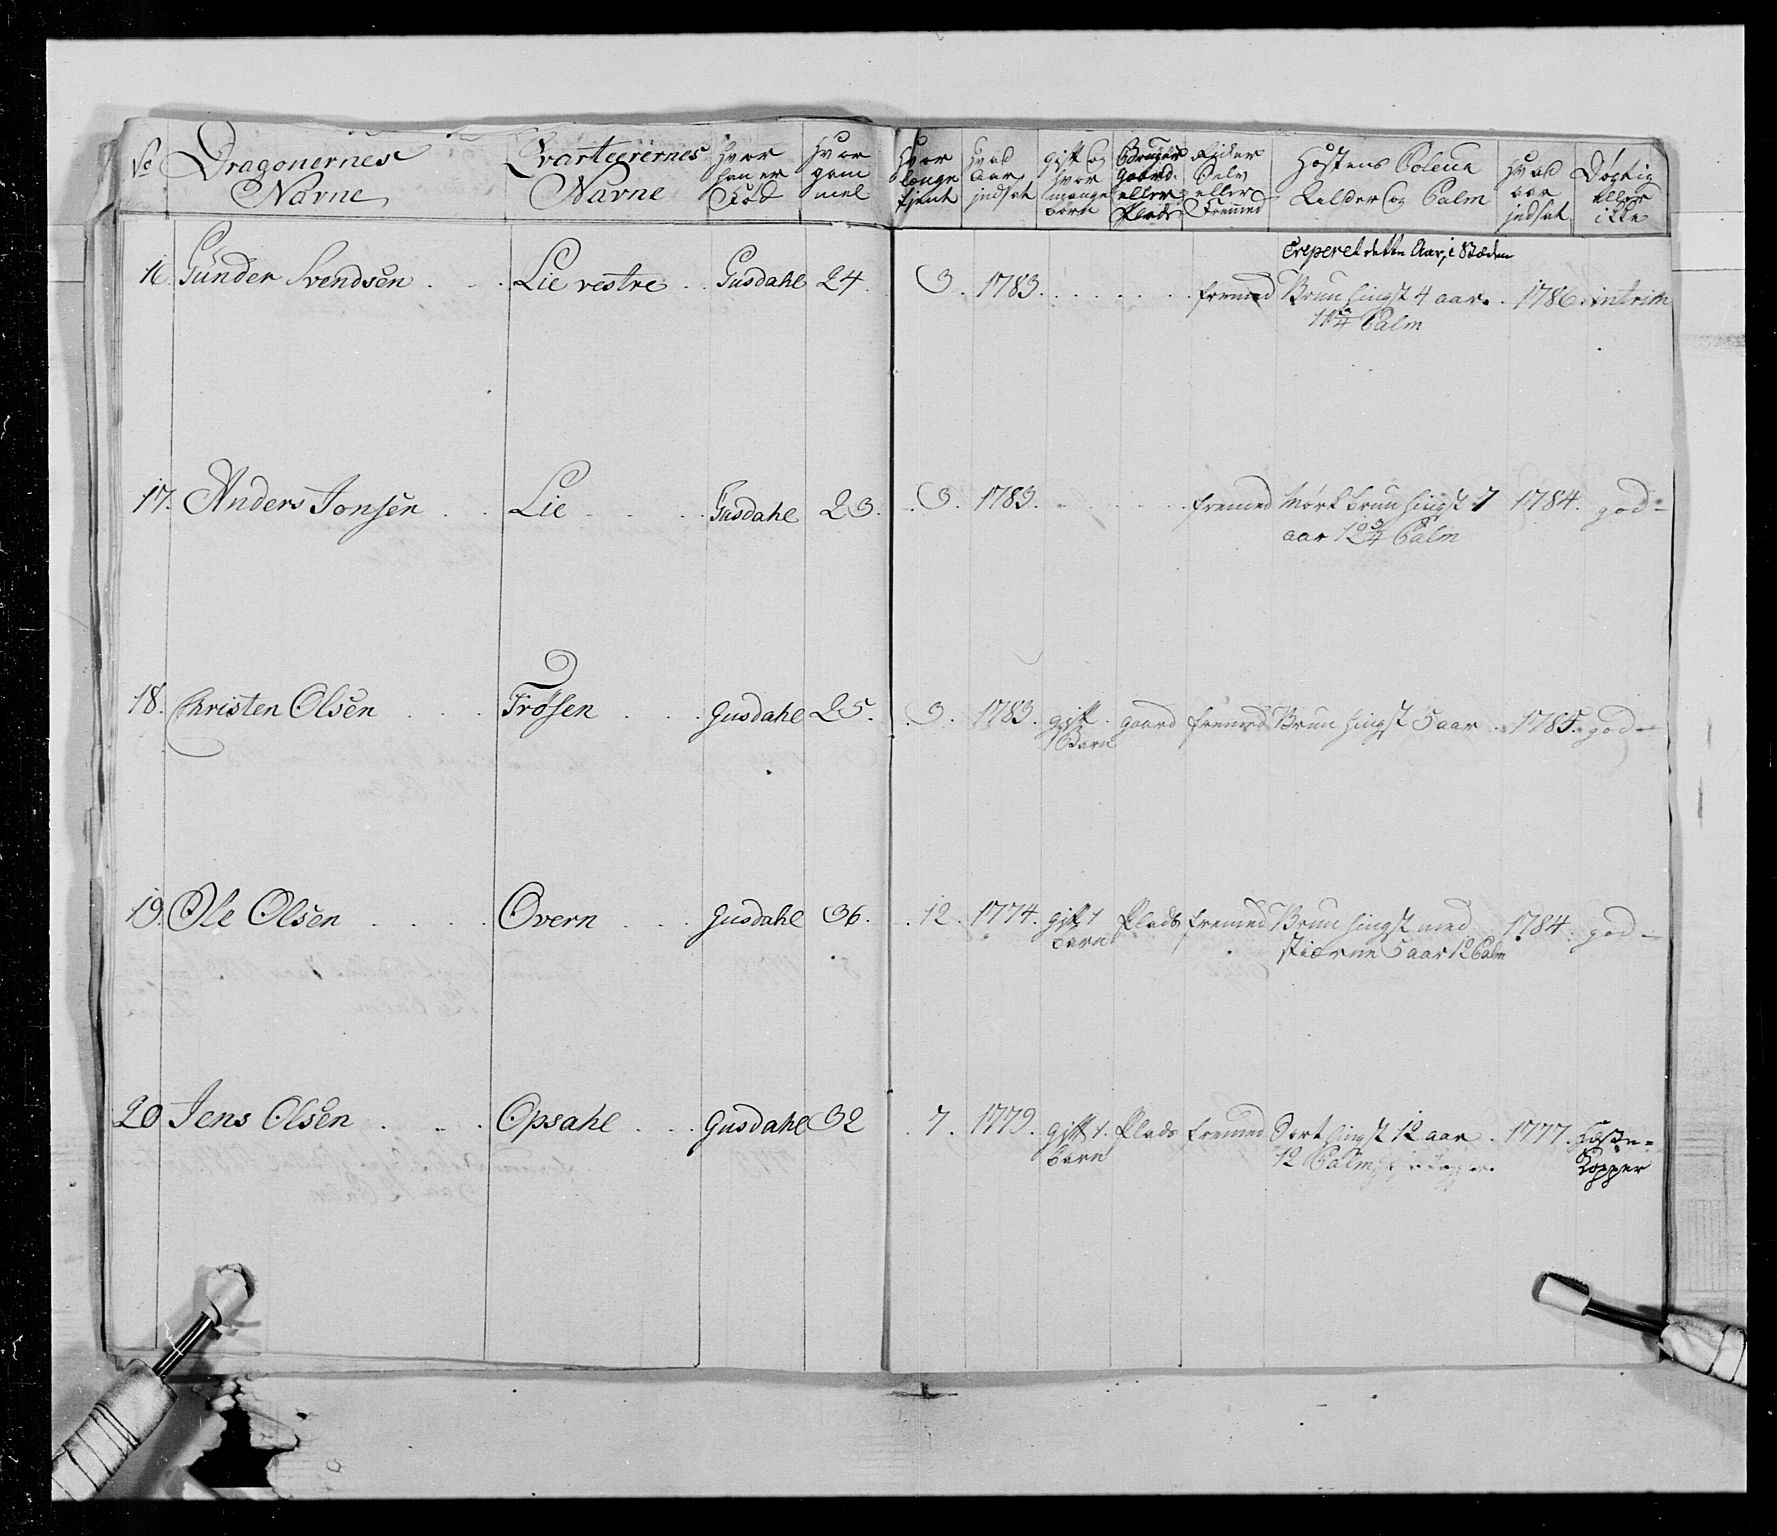 No Dragonernes Navne Qvarteerernes Navne Hvor han er Fød Hvor gam mel Hvor længe tient Hvad Aar indsat gift og hvor mange børn Bruger gaard eller Plads Rider Selv eller Fremmed Hæstens Coleur Alder og Palm Hvad aar indsat Døgtig eller ikke
Creperet dette Aar, i Stæden
16. Gunder Svendsen . . . Lie vestre . . Gusdahl 24. 3. 1783. . . . . . . . fremed Brun hingst 4 aar. . 1786. intrim
11 3/4 Palm
17. Anders Jonsen . . Lie . . . . Gusdahl 23. . 3. 1783. . . . . . . fremed Mørk brun hingst 7 1784. god-
aar 12 3/4 Palm
18. Christen Olsen . . . Frøsen . . . Gusdahl 25. . 3. 1783. gift . gaard fremed Brun hingst 5 aar . 1785. god-
1 Barn
19. Ole Olsen . . . . Overn . . . Gusdahl 36. . 12. 1774. gift 1 Plads fremed Brun hingst med 1784. god-
barn stierne 5 aar 12 Palm
20 Jens Olsen . . . Opsahl . . . Gusdahl 32 7. 1779. gift 1. Plads fremed Sort hingst 12 aar . 1777.
barn 12 Palm